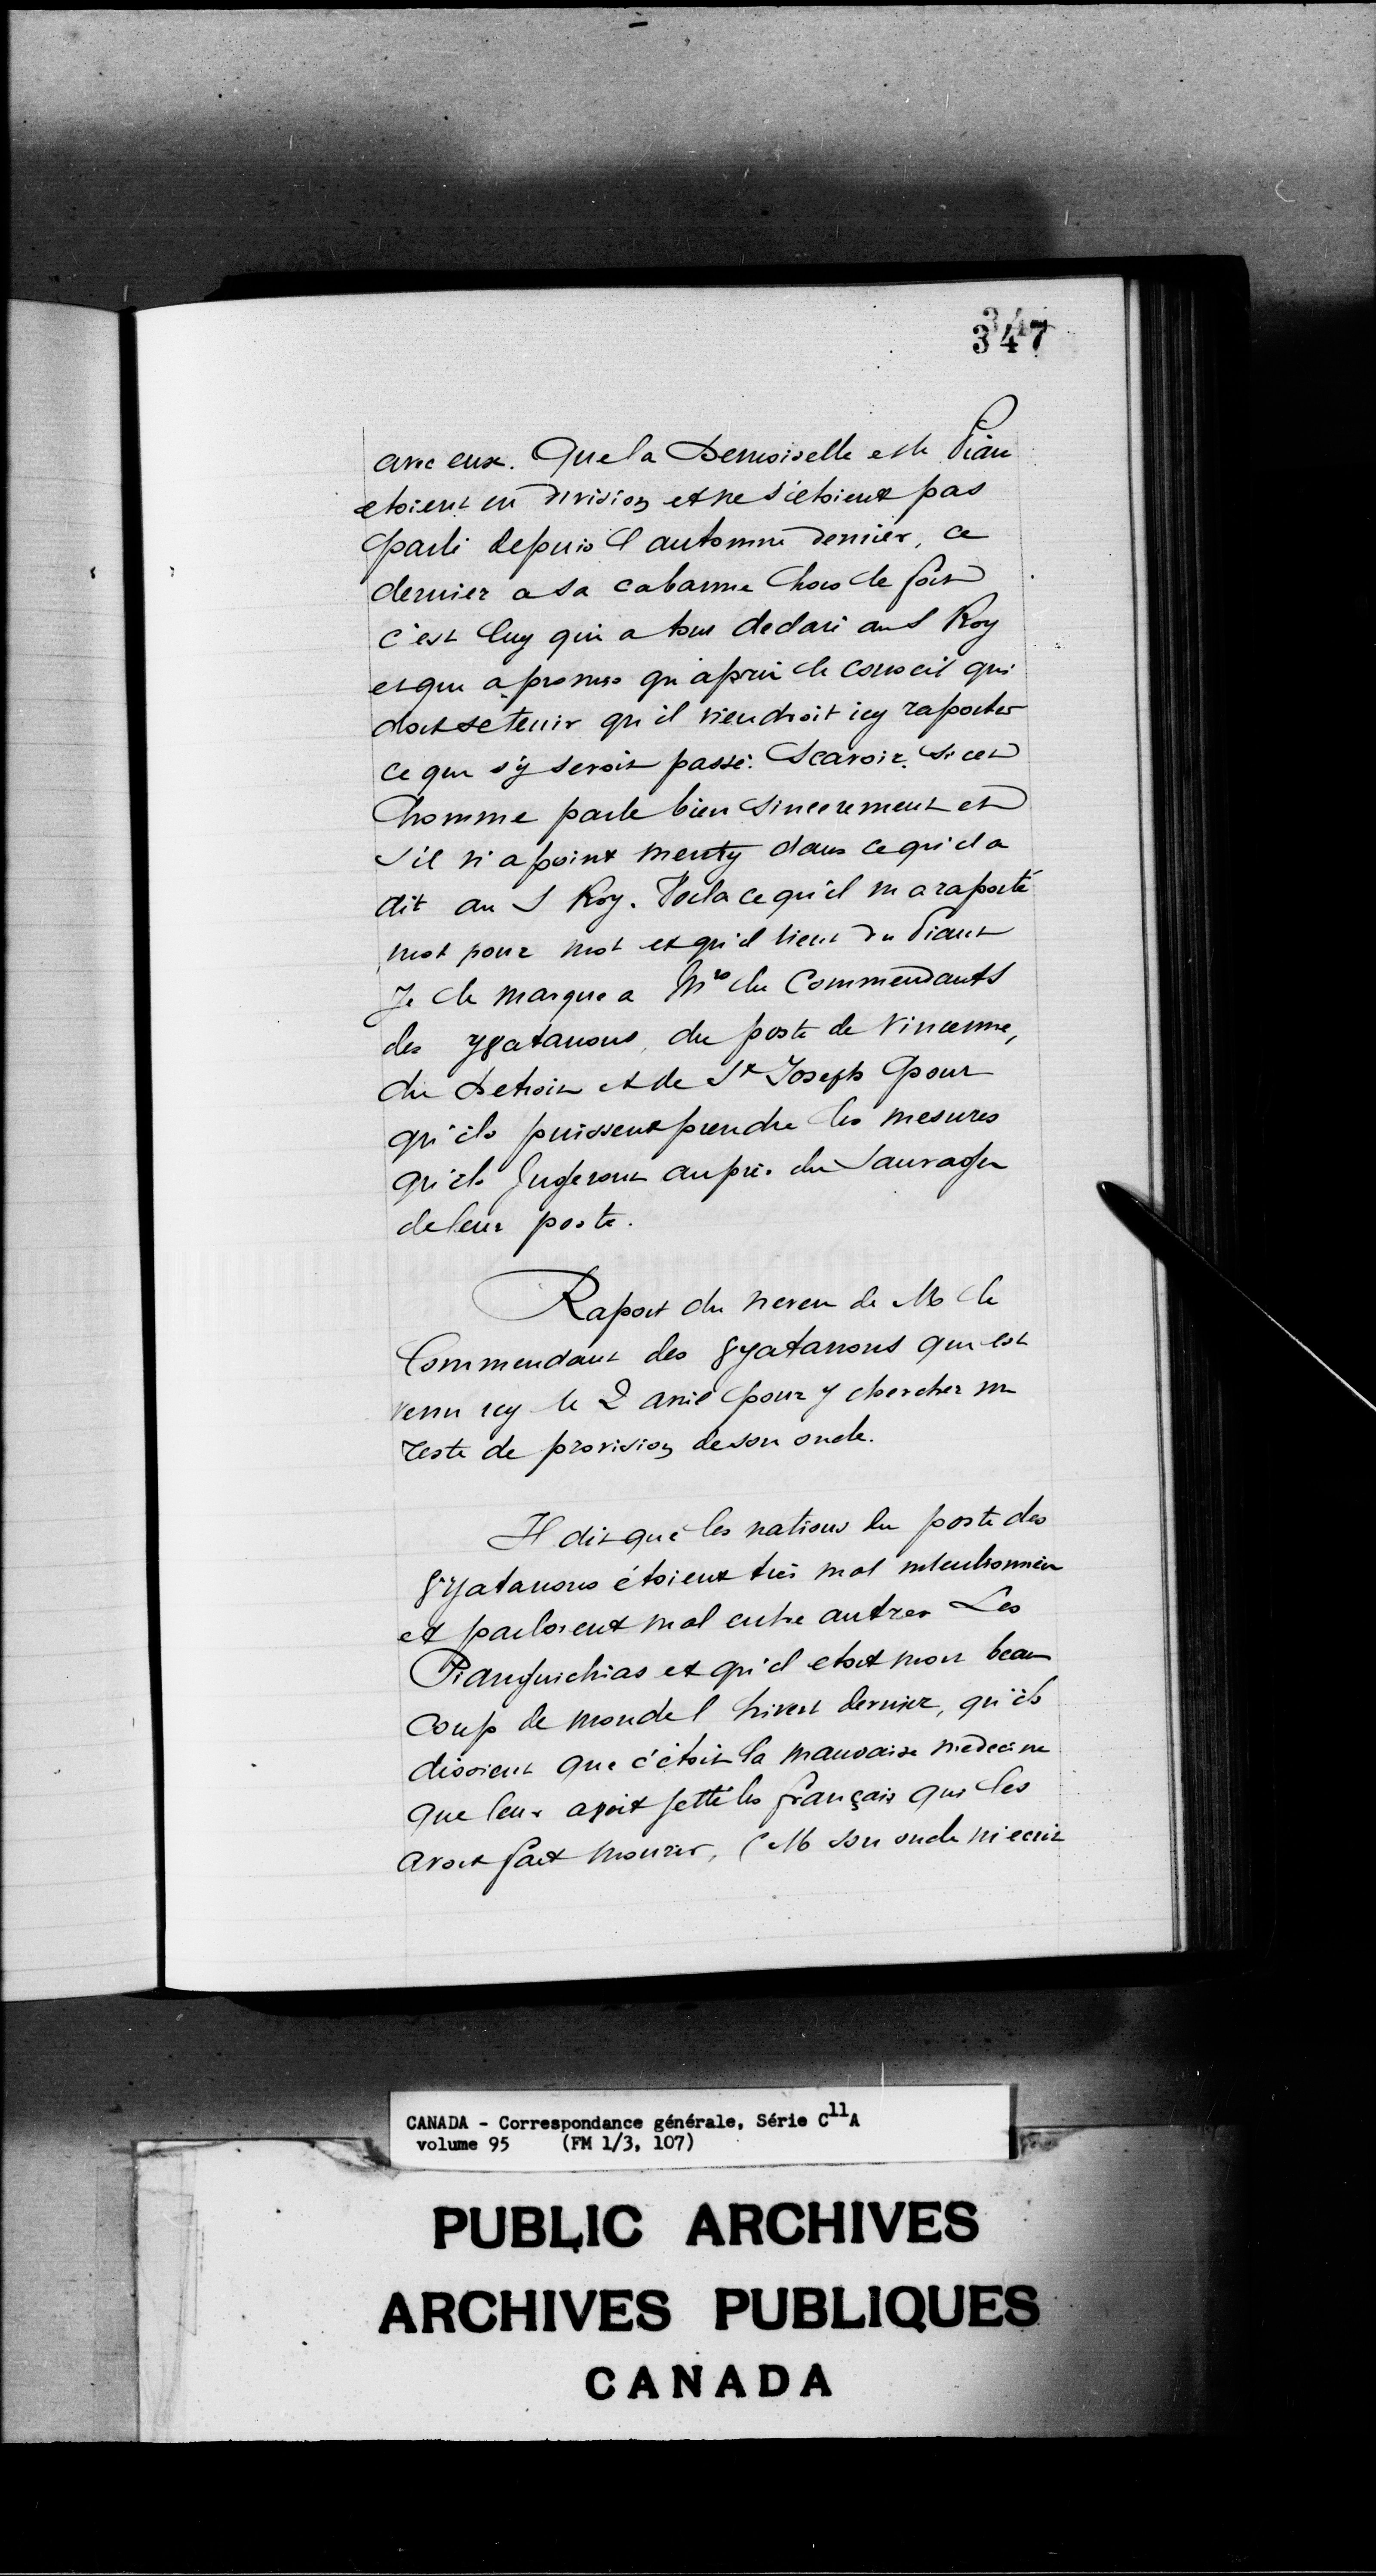 347
avec eux. Que la Demoiselle et le Pian
etoient en division et ne s'etoient pas
parlé depuis l'automne dernier, ce
dernier a sa cabanne hors le fort
c'est luy qui a tous declaré au S Roy
et qui a promis qu'après le conseil qui
doit se tenir qu'il viendroit icy raporter
ce qui s'y seroit passé. Scavoir si cet
homme parle bien sincerement et
s'il n'a point menty dans ce qu'il a
dit au S Roy. Voila ce qu'il m'a raporté
mot pour mot et qu'il tient du Piant
Je le marque a Mrs les Commendants
des 8yatanons, du poste de Vincenne,
du Detroit et de St Joseph pour
qu'ils puissent prendre les mesures
qu'ils jugeront auprès des Sauvages
de leur poste.
Raport du neveu de M le
Commendant des 8yatanons qui est
venu icy le 2 avril pour y chercher un
reste de provision de son oncle.
Il dit que les nations du poste des
8yatanons étoient très mal intentionnées
et parloient mal entre autres Les
Pianguichias et qu'il etoit mort beau
coup de monde l'hivert dernier, qu'ils
disoient que c'étoit la mauvaise medecine
que leur avoit jetté les français qui les
avoit fait mourir, (M son oncle m'ecrit
CANADA - Correspondance générale, Série C11A
volume 95 (FM 1/3, 107)
PUBLIC ARCHIVES
ARCHIVES PUBLIQUES
CANADA